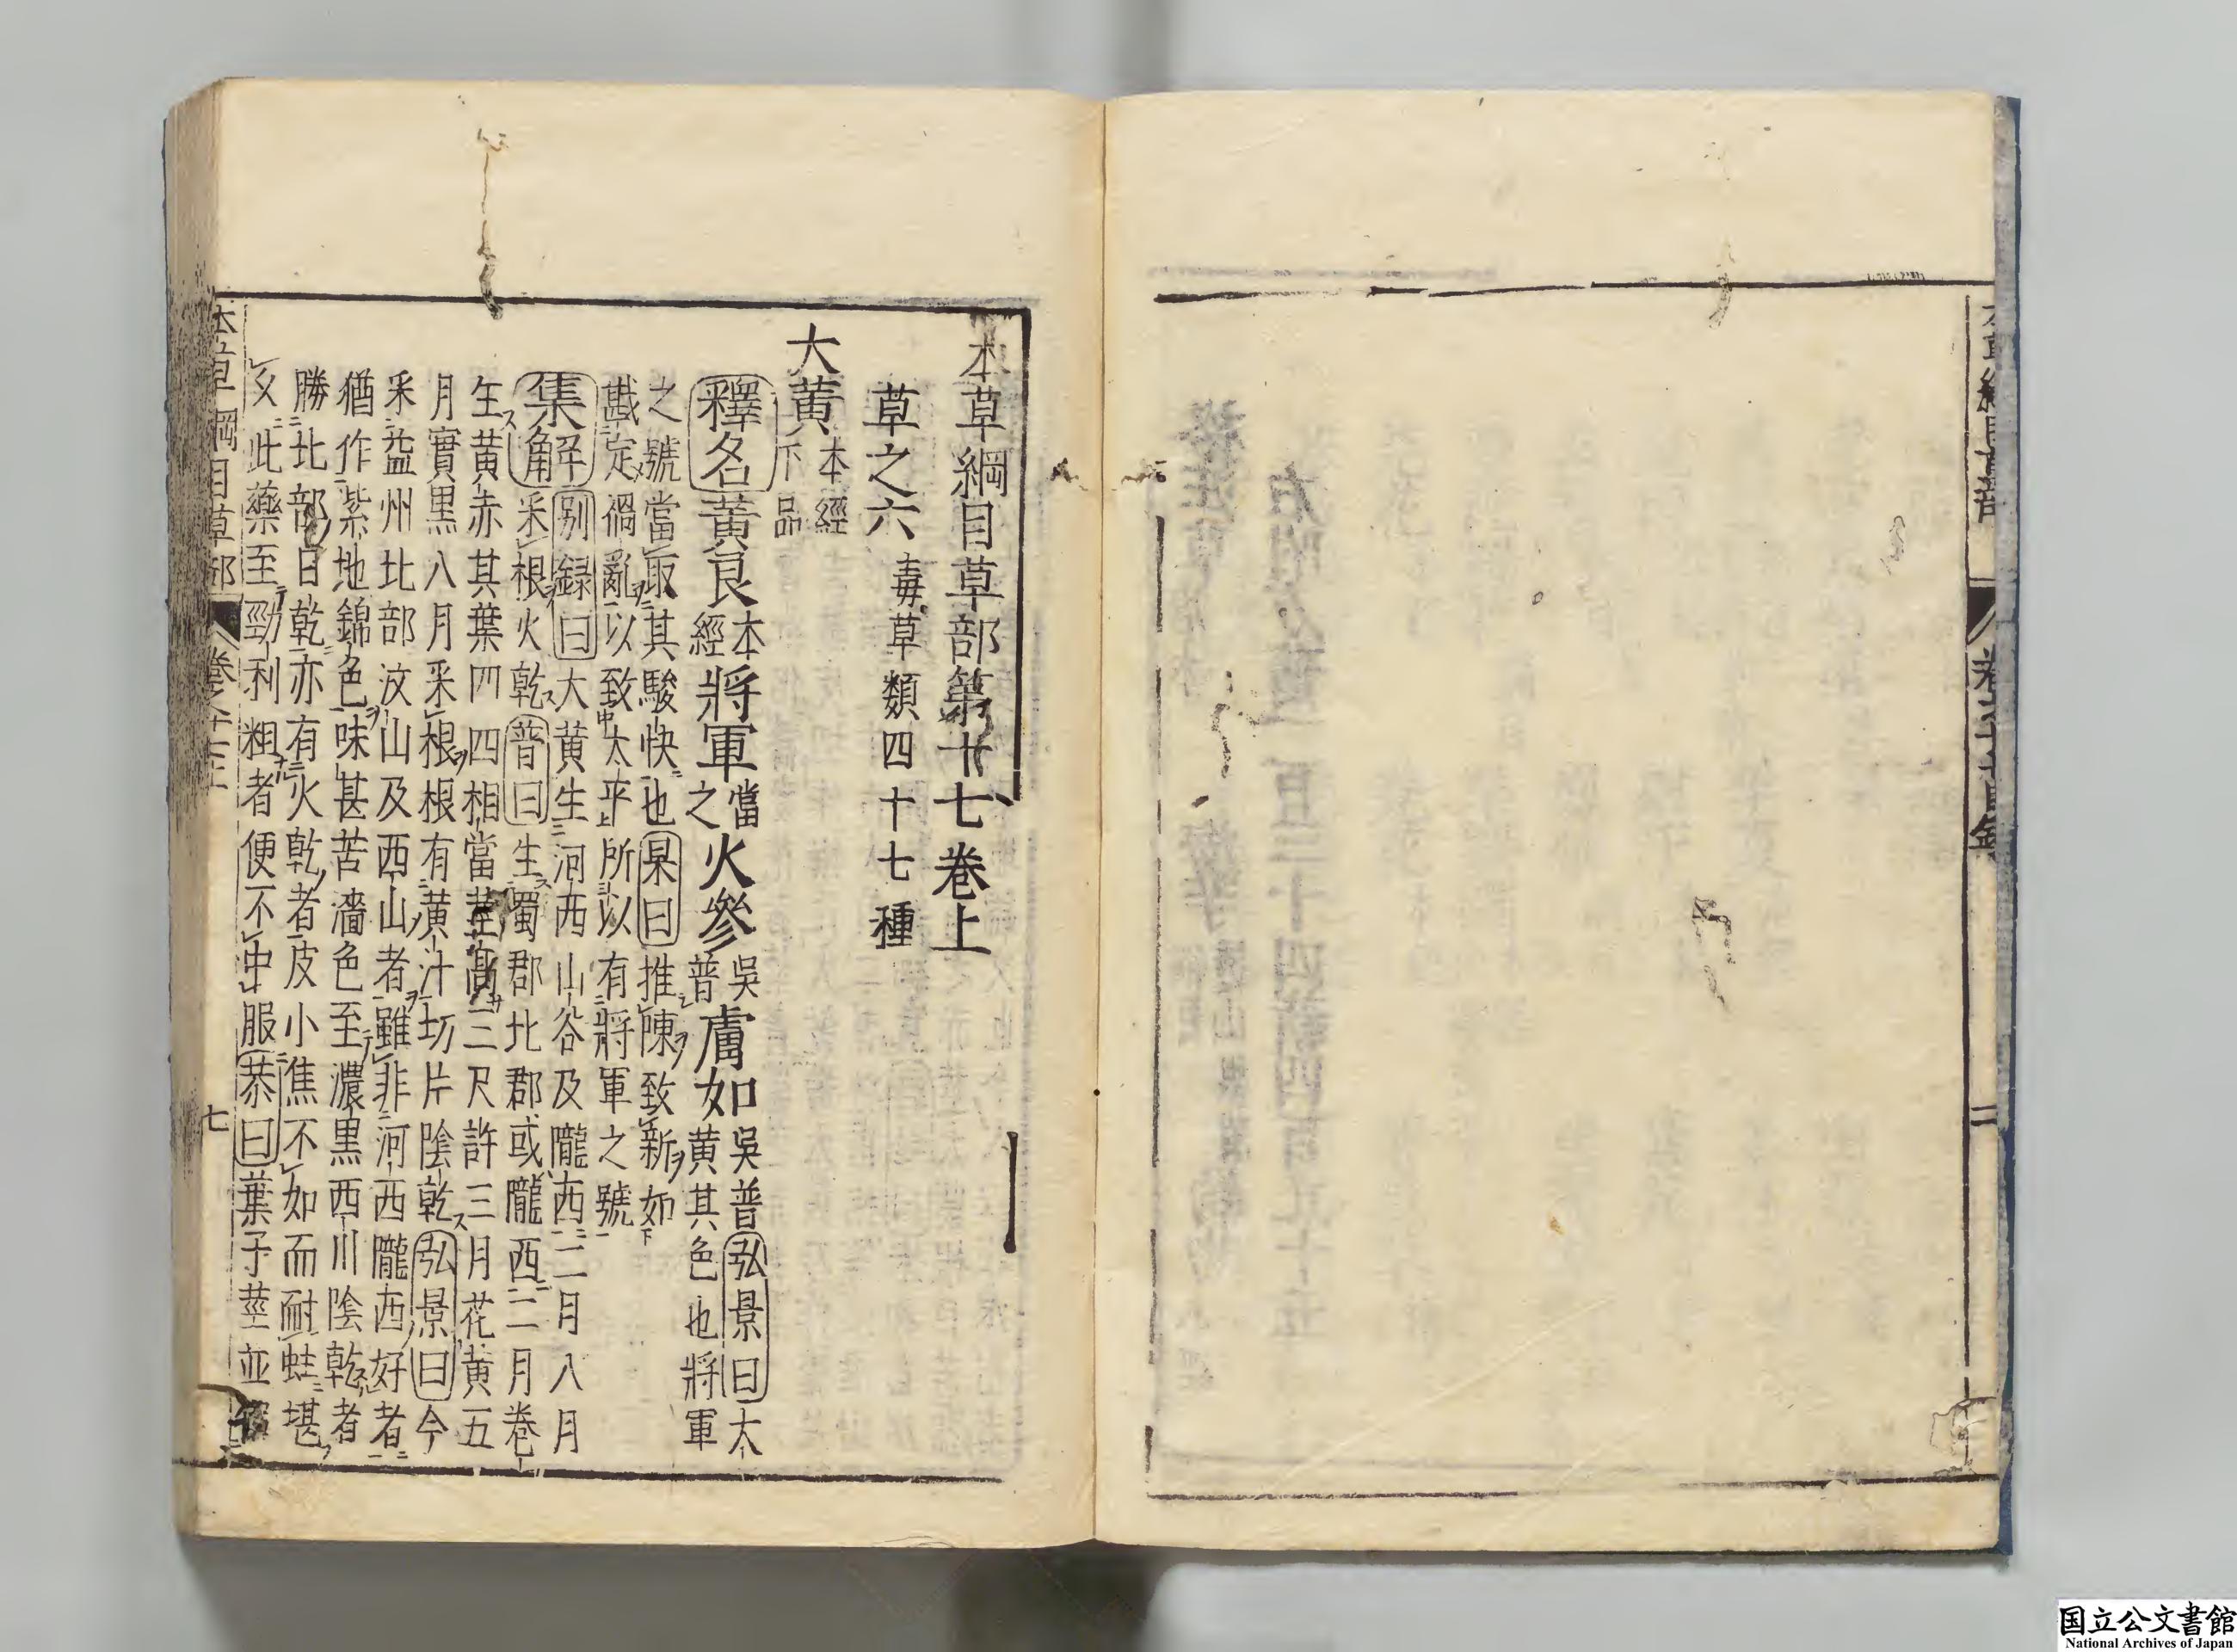 卷
二
本草綱目草部第十七卷上
草之六 毒草類四十七種
大黃 本經下品
釋名 黃良 本經 將軍 當之 火參 吳普 膚如 吳普 弘景曰 大黃其色也將軍
之號當取其駿快也杲曰推陳致新如
戡定禍亂以致太平所以有將軍之號
集解 別録曰大黃生河西山谷及隴西二月八月
采根火乾普曰生蜀郡北郡或隴西二月卷
生黃赤其葉四四相當莖高三尺許三月花黃五
月實黒八月采根根有黃汁切片陰乾弘景曰今
采益州北部汶山及西山者雖非河西隴西好者
猶作紫地錦色味甚苦濇色至濃黒西川陰乾者
勝北部日乾亦有火乾者皮小焦不如而耐蛀堪
又此藥至勁利粗者便不中服恭曰葉子莖並
本草綱目草部
七
国立公文書館
National Archives of Japan